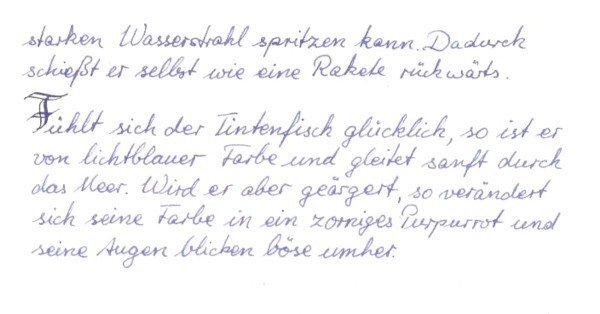 starken Wasserstrahl spritzen kann. Dadurch
schießt er selbst wie eine Rakete rückwärts.
Fühlt sich der Tintenfisch glücklich, so ist er
von lichtblauer Farbe und gleitet sanft durch
das Meer. Wird er aber geärgert, so verändert
sich seine Farbe in ein zorniges Purpurrot und
seine Augen blicken böse umher.